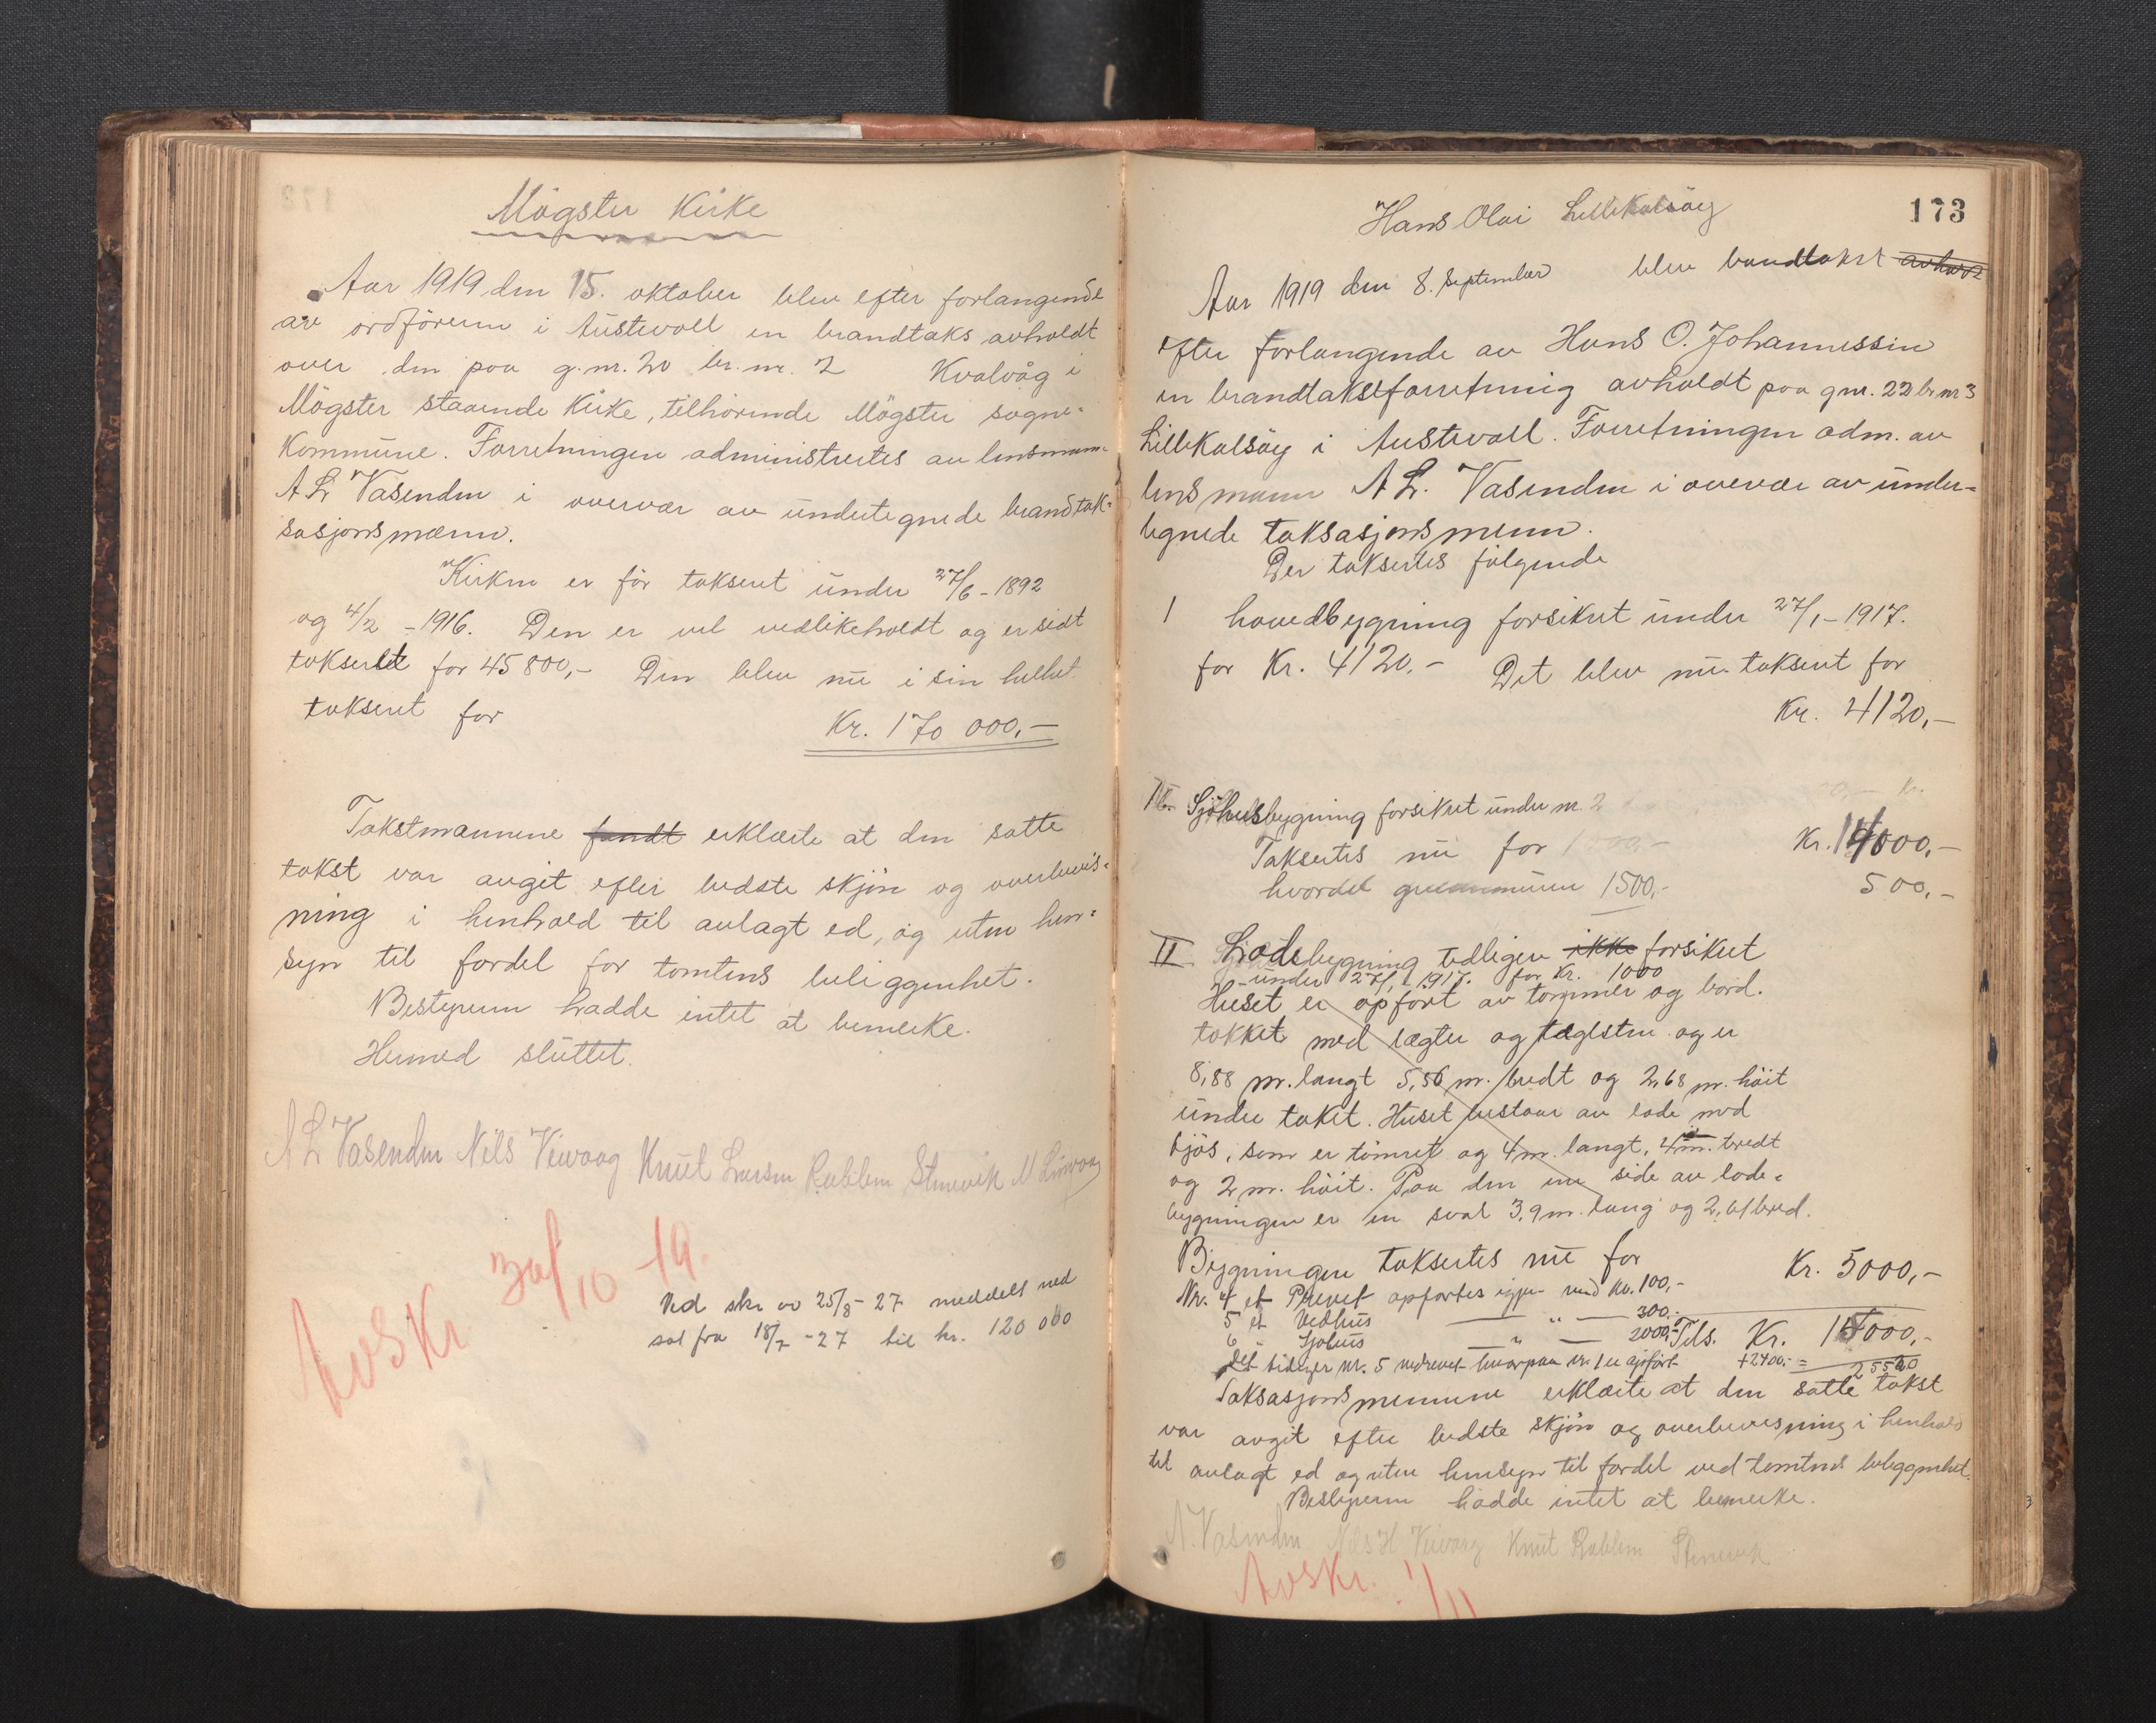 Mögster Kirke
Aar 1919 den 15. oktober blev efter forlangende
av ordföreren i Austevoll en brandtakst avholdt
over den paa g.nr. 20 br. nr. 2 Kvalvåg i
Mögster staaende Kirke, tilhörende Mögster sogne-
Kommune. Forretningen administrertes av lensmann
A L Vasenden i overvær av undertegnede brandtak-
sasjonsmænn.
Kirken er för taksert under 27/6 - 1892
og 4/2 - 1916. Den er vel vedlikeholdt og er sidt
taksert for 45 800,- Den blev nu i sin helhet
taksert for
Kr. 170 000,-
Takstmannene fandt erklærte at den satte
takst var avgit efter bedste skjön og overbevis-
ning i henhold til avlagt ed, og uten hen-
syn til fordel for tomtens beliggenhet.
Bestyreren hadde intet at bemerke.
Hermed sluttet.
A L Vasenden Nils Veivaag Knut Larsen Rabben Stenevik
Avskr. 30/10 19.
Ved skr av 25/8 - 27 meddelt ned
sat fra 18/7 - 27 til kr. 120 000
173
Hans Olai Lillekalsöy
Aar 1919 den 8. September blev brandtakst avholdt
efter forlangende av Hans O. Johannessen
en brandtakstforretning avholdt paa gnr. 22 br nr 3
Lillekalsöy i Austevoll. Forretningen adm. av
lensmann A L. Vasenden i overvær av under-
tegnede taksasjonsmenn.
Der taksertes fölgende
1 hovedbygning forsikret under 27/1 - 1917.
for Kr. 4120.- Det blev nu taksert for
Kr. 4120,-
Sjöhusbygning forsikret under nr. 2
Taksertes nu for Kr. 14000,-
hvordel 1500,- 500,-
II Lodebygning tidligere ikke forsikret
under 27/1 1917. for Kr. 1000
Huset er opfört av tömmer og bord.
tækket med lægter og tæglsten og er
8,88 m. langt 5,56 m. bredt og 2,68 m. höit
under taket. Huset bestaar av lode med
fjös, som er tömret og 4 m. langt, 4 m. bredt
og 2 m. höit. Paa den ene side av lode-
bygningen er en sval 3,9 m. lang og 2,61 bred.
Bygningen taksertes nu for Kr. 5000,-
Nr. 4 et Prevet opförtes igjen med Kr. 100,-
5 et Vedhus — " — 300.-
6 - Sjöhus — " — 2000,- Tils. Kr. 15000,-
Det tidliger nr. 5 nedrevet hvorpaa nr. 1 er opfört + 2400,- = 25520
Taksasjonsmennene erklærte at den satte takst
var avgit efter bedste skjön og overbevisning i henhold
til avlagt ed og uten hensyn til fordel ved tomtens beliggenhet.
Bestyreren hadde intet at bemerke.
A. Vasenden Nils H Veivaag Knut Rabben Stenevik
Avskr. 1/11